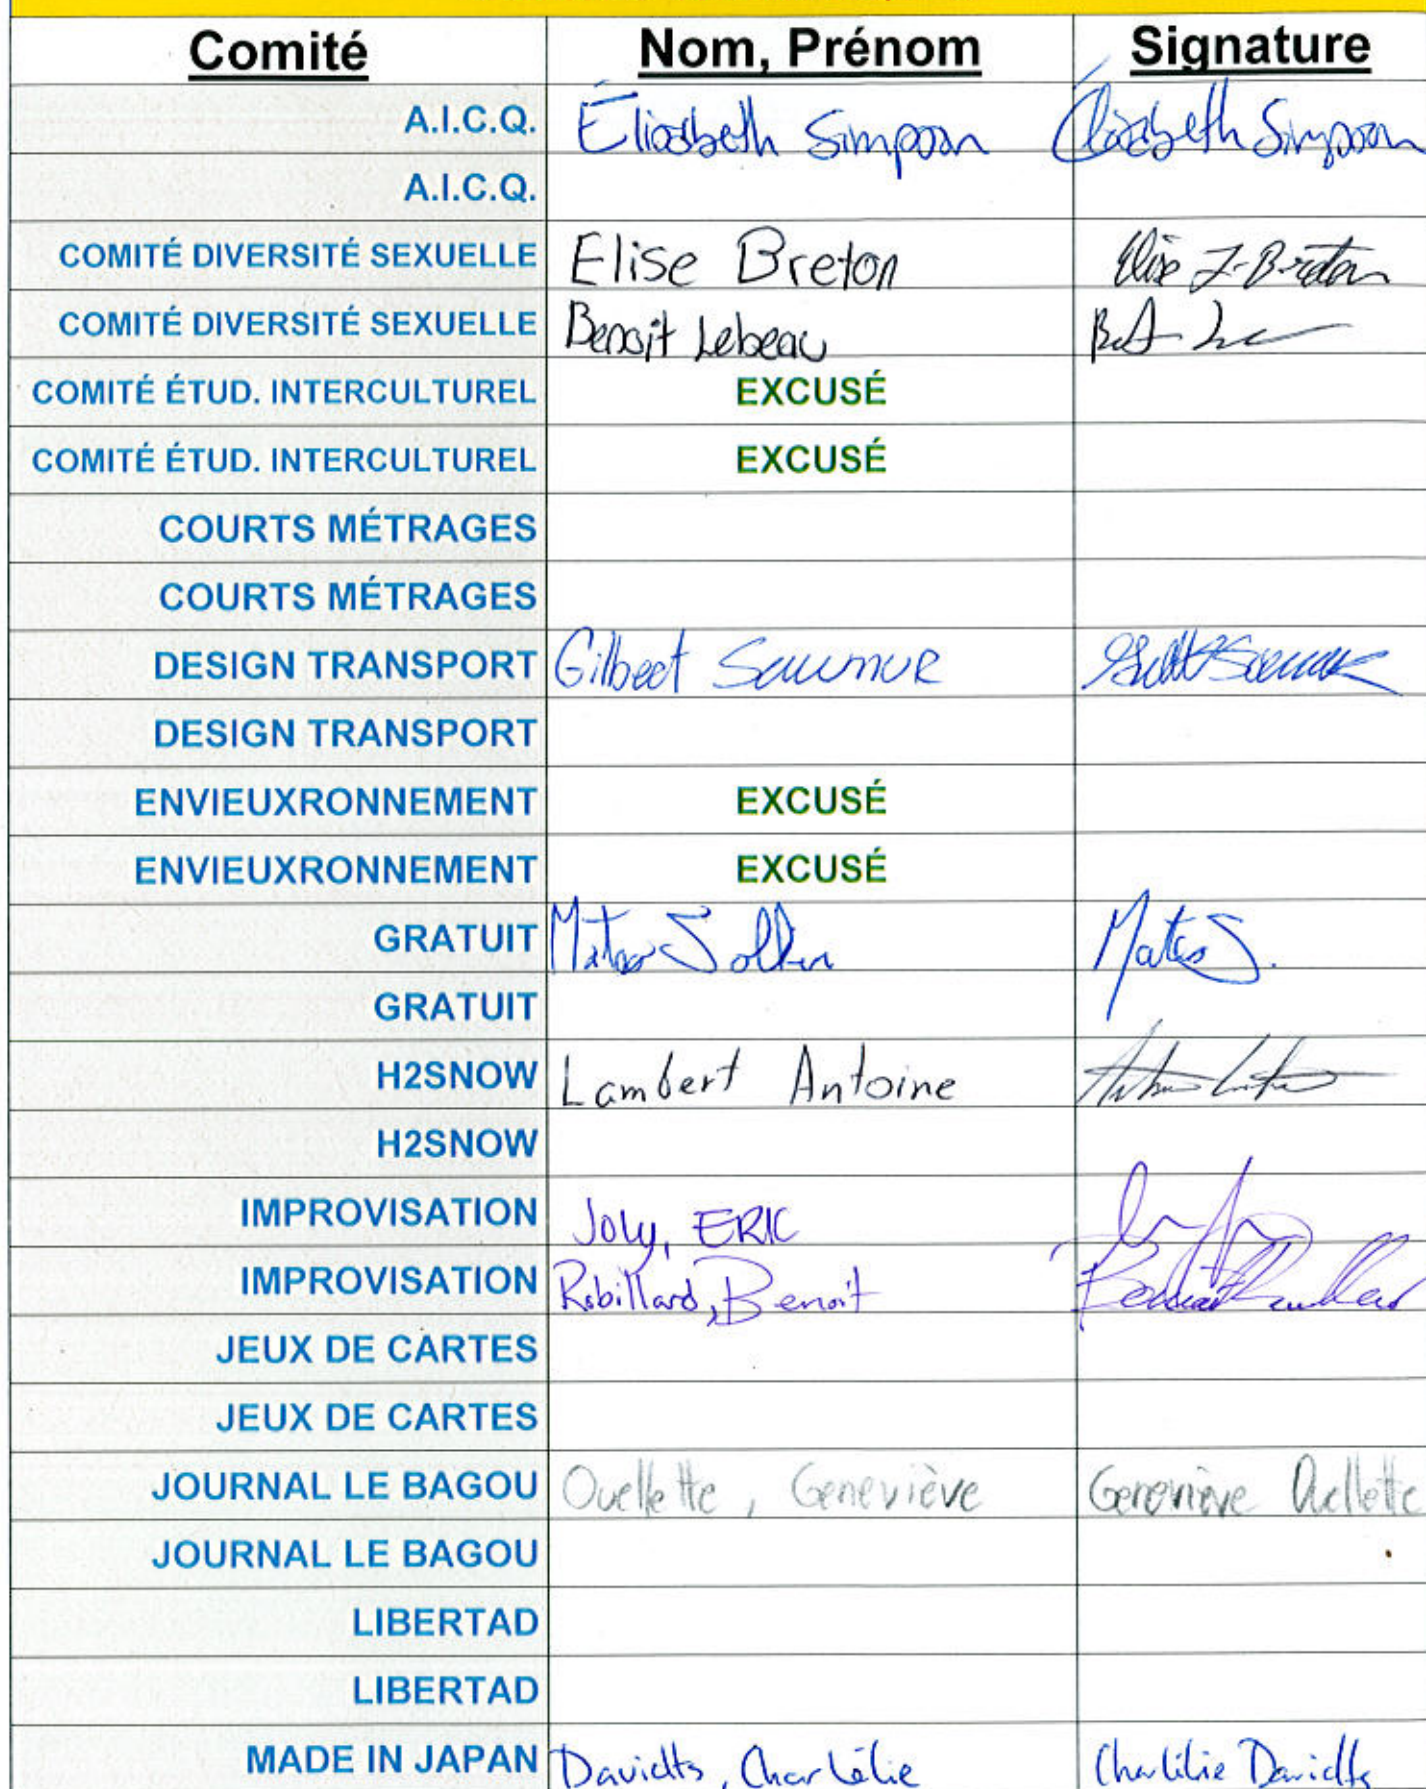 Comité Nom, Prénom Signature
A.I.C.Q. Élisabeth Simpson Élisabeth Simpson
A.I.C.Q.
COMITÉ DIVERSITÉ SEXUELLE Elise Breton Elise J-Breton
COMITÉ DIVERSITÉ SEXUELLE Benoit Lebeau
COMITÉ ÉTUD. INTERCULTUREL EXCUSÉ
COMITÉ ÉTUD. INTERCULTUREL EXCUSÉ
COURTS MÉTRAGES
COURTS MÉTRAGES
DESIGN TRANSPORT Gilbert Saumur
DESIGN TRANSPORT
ENVIEUXRONNEMENT EXCUSÉ
ENVIEUXRONNEMENT EXCUSÉ
GRATUIT
GRATUIT
H2SNOW Lambert Antoine
H2SNOW
IMPROVISATION Joly, ERIC
IMPROVISATION Robillard, Benoit
JEUX DE CARTES
JEUX DE CARTES
JOURNAL LE BAGOU Ouellette, Geneviève Geneviève Ouellette
JOURNAL LE BAGOU
LIBERTAD
LIBERTAD
MADE IN JAPAN Davidts, Charlélie Charlélie Davidts